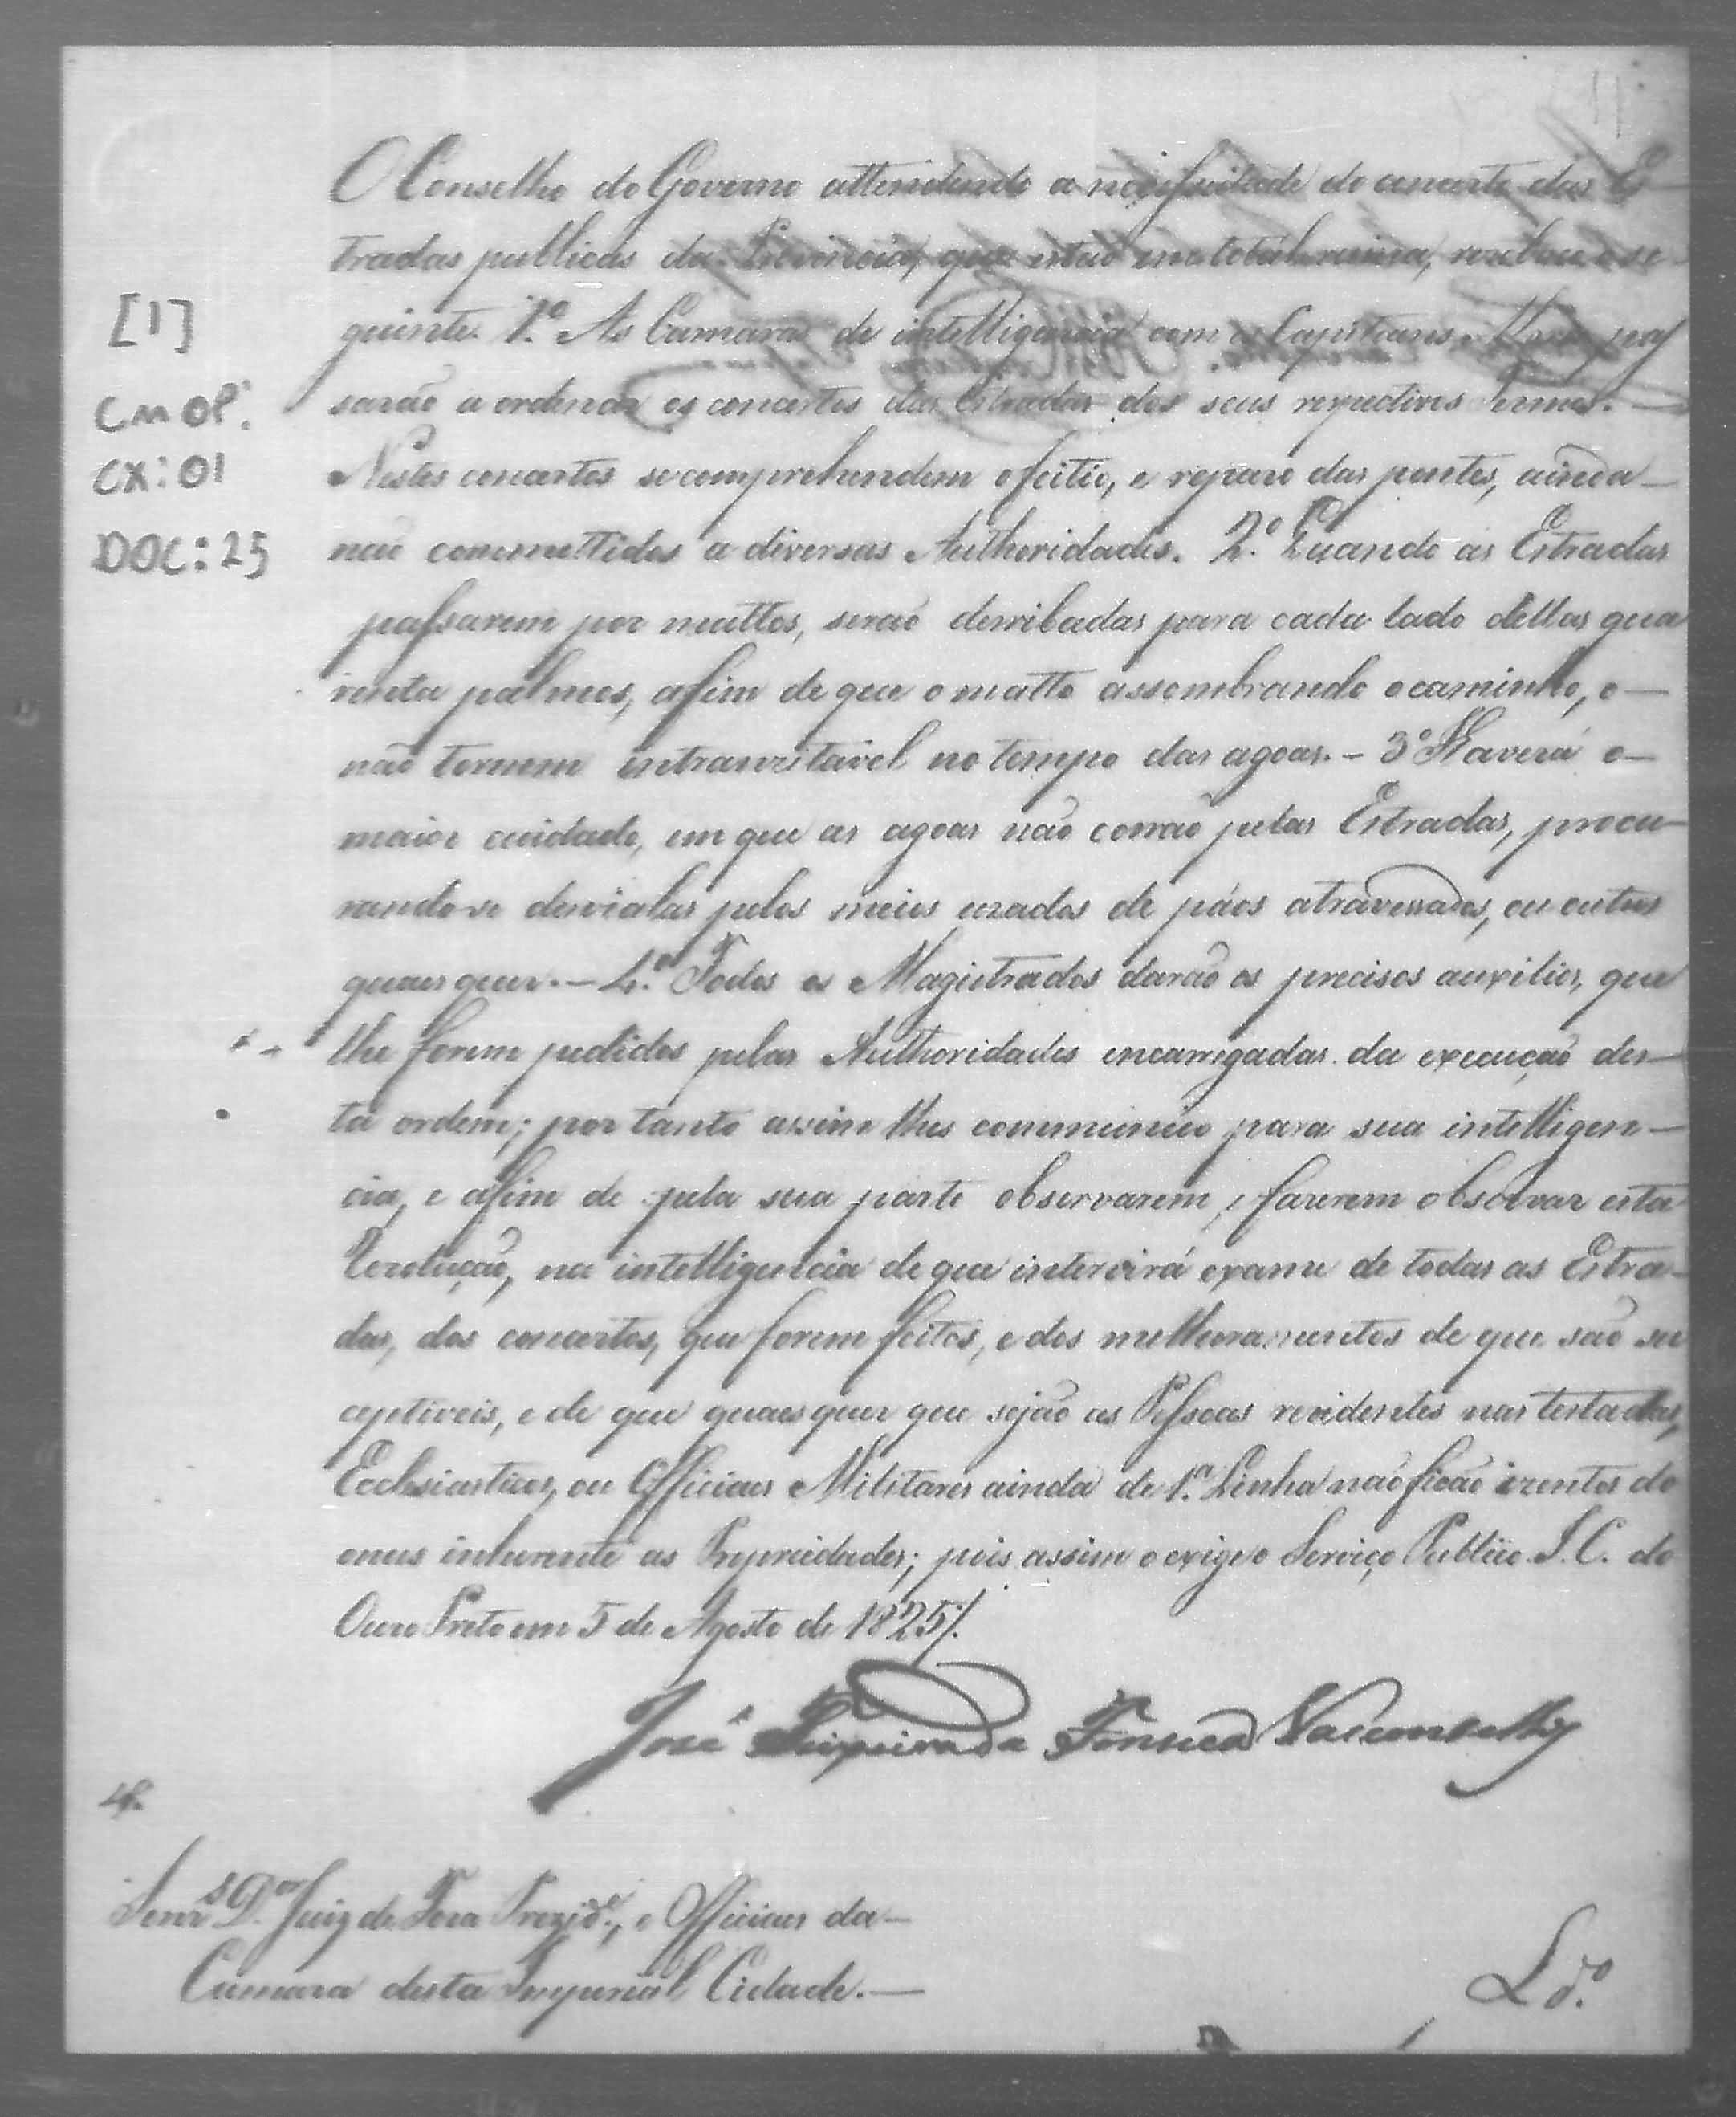 11
O Conselho do Governo attendendo a necessidade do concerto das Es
tradas publicas da Provincia, que estaõ em total ruina, resolveo o se
guinte. 1.º As Camaras de intelligencia com os Capitaens Mores pas
saraõ a ordenar os concertos das Estradas dos seus respectivos Termos. —
[1]
CMOP.
CX: 01
DOC: 25
Nestes concertos se comprehendem o feitio, e reparo das pontes, ainda —
naõ commettidos a diversas Authoridades. 2.º Quando as Estradas
passarem por mattos, seraõ derribadas para cada lado dellas qua
renta palmos, afim de que o matto assombrando o caminho, o —
não tornem intranzitavel no tempo das agoas. — 3º Haverá o —
maior cuidado, em que as agoas não corraõ pelas Estradas, procu
rando-se desvialas pelos meios uzados de páos atravessados, ou outros
quaes quer. — 4.º Todos os Magistrados darão os precisos auxilios, que
lhe forem pedidos pelas Authoridades encarregadas da execuçaõ des —
ta ordem; por tanto assim lhes communico para sua intelligen —
cia, e afim de pela sua parte observarem, e fazerem observar esta
Rezoluçaõ, na intelligencia de que intervirá exame de todas as Estra-
das, dos concertos, que forem feitos, e dos melhoramentos de que saõ sus
ceptiveis, e de que quaes quer que sejaõ as Pessoas rezidentes nas testadas,
Ecclesiasticos, ou Officiaes Militares ainda de 1.ª Linha não ficão izentos do
onus inherente as Propriedades; pois assim o exige o Serviço Publico. I. C. do
Ouro Preto em 5 de Agosto de 1825/.
José Teixeira da Fonseca Vasconcellos
Senr.s D.or Juiz de Fora Prezid.e, e Officiaes da —
Camara desta Imperial Cidade. —